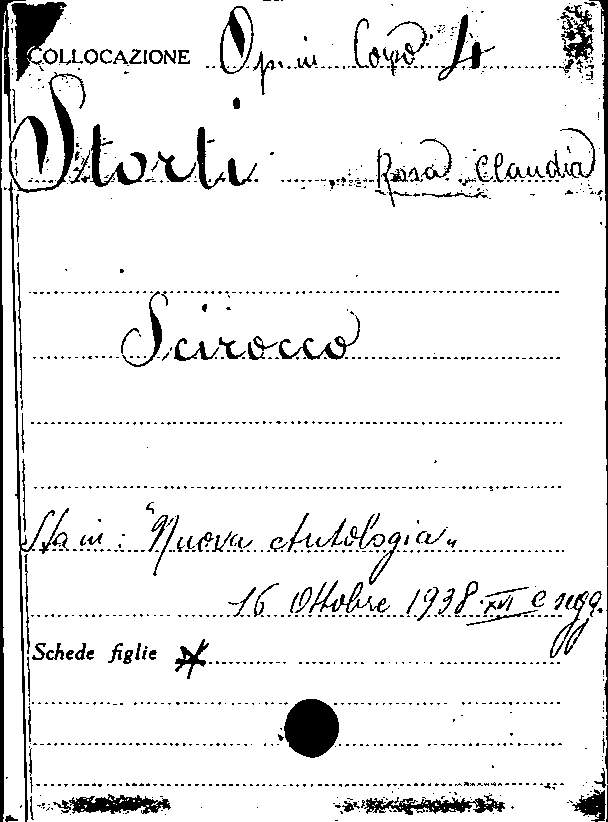 COLLOCAZIONE Op. in Capo
Storti Rosa Claudia
Scirocco
Sta in: "Nuova Antologia„
16 Ottobre 1938 XVI e segg.
Schede figlie